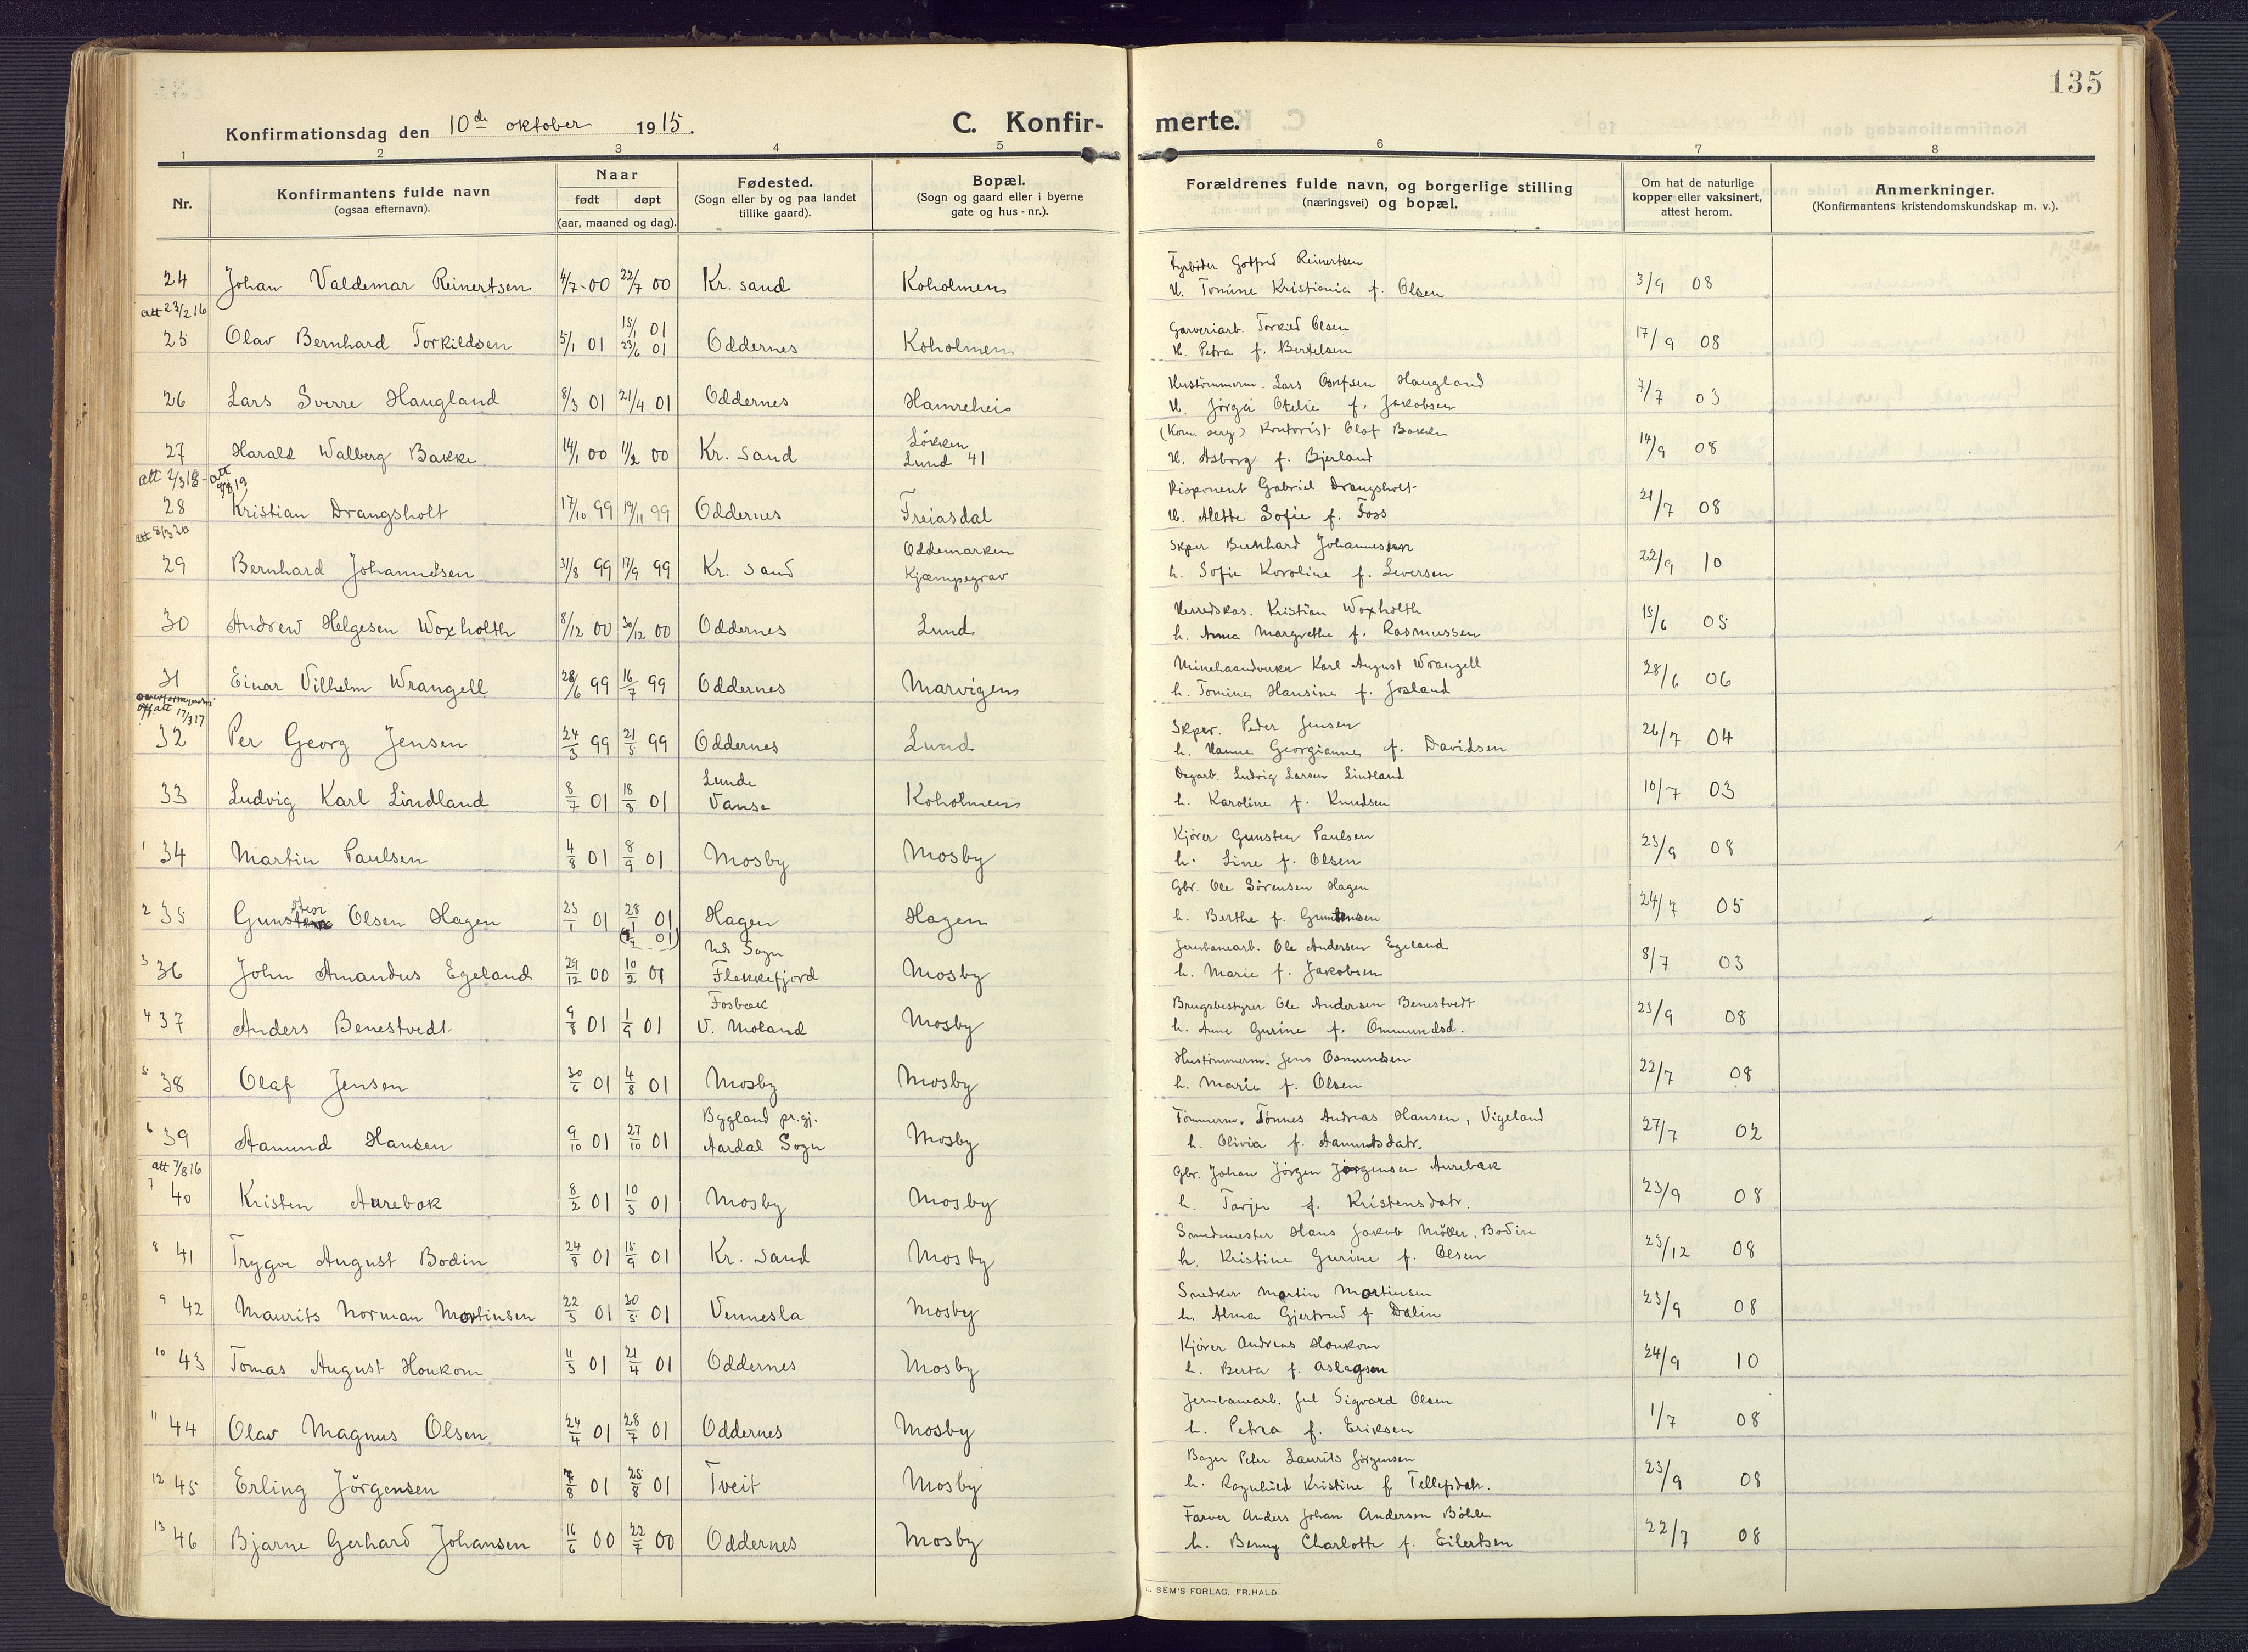 135
Konfirmationsdag den 10de oktober 1915.
C. Konfirmerte.
1 2 3 4 5 6 7 8
Nr.
Konfirmantens fulde navn
(ogsaa efternavn).
Naar
født døpt
(aar, maaned og dag).
Fødested.
(Sogn eller by og paa landet
tillike gaard).
Bopæl.
(Sogn og gaard eller i byerne
gate og hus-nr.).
Forældrenes fulde navn, og borgerlige stilling
(næringsvei) og bopæl.
Om hat de naturlige
kopper eller vaksinert,
attest herom.
Anmerkninger.
(Konfirmantens kristendomskundskap m. v.).
Fyrbøder Gotfred Reinertsen
24 Johan Valdemar Reinertsen 4/7-00 22/7 00 Kr. sand Koholmen H. Tomine Kristiania f. Olsen 3/9 08
att 23/2 16
15/1 01 Garveriarb. Torkild Olsen
25 Olav Bernhard Torkildsen 5/1 01 23/6 01 Oddernes Koholmen H. Petra f. Bertelsen 17/9 08
Hustømmerm. Lars Haugland
26 Lars Sverre Haugland 8/3 01 21/4 01 Oddernes Hamreheia H. Otelie f. Jakobsen 7/7 03
Løkken Kontorist Olaf Bakke
27 Harald Walberg Bakke 14/1 00 11/2 00 Kr. sand Lund 41 H. Asborg f. Bjerland 14/9 08
att 2/3 18 - att
Disponent Gabriel Drangsholt
28 Kristian Drangsholt 17/10 99 19/11 99 Oddernes Freiasdal H. Alette Sofie f. Foss 21/7 08
att 8/3 20
Oddemarken Skper Bernhard Johannessen
29 Bernhard Johannesen 31/8 99 17/9 99 Kr. sand Kjæmpegrav h. Sofie Karoline f. Seversen 22/9 10
Herredskas. Kristian Woxholth
30 Andrew Helgesen Woxholth 8/12 00 30/12 00 Oddernes Lund h. Anna Margrethe f. Rasmussen 15/6 05
Karl August Wrangell
31 Einar Vilhelm Wrangell 28/6 99 16/7 99 Oddernes Marvigen h. Tomine Hansine f. Josland 28/6 06
att 17/3 17
Skper. Peder Jensen
32 Per Georg Jensen 24/3 99 21/5 99 Oddernes Lund h. Hanne Georgianne f. Davidsen 26/7 04
Lunde Dagarb. Ludvig Larsen Lindland
33 Ludvig Karl Lindland 8/7 01 18/8 01 Vanse Koholmen h. Karoline f. Knudsen 10/7 03
Kjører Gunsten Paulsen
1 34 Martin Paulsen 4/8 01 8/9 01 Mosby Mosby h. Line f. Olsen 23/9 08
Gbr. Ole Sørensen Hagen
2 35 Gunsten Olsen Hagen 23/1 01 28/1 01 Hagen Hagen h. Berthe f. Gunstensen 24/7 05
Nes Sogn Jernbanearb. Ole Andersen Egeland
3 36 John Amandus Egeland 29/12 00 10/2 01 Flekkefjord Mosby h. Marie f. Jakobsen 8/7 03
Fosbæk Brugsbestyrer Ole Andersen Benestvedt
4 37 Anders Benestvedt 9/8 01 1/9 01 V. Moland Mosby h. Anne Gurine f. Ommundsd. 23/9 08
Hustømmerm. Jens Osmundsen
5 38 Olaf Jensen 30/6 01 4/8 01 Mosby Mosby h. Marie f. Olsen 22/7 08
Bygland pr.gj. Tømmerm. Tønnes Andreas Hansen, Vigeland
6 39 Aamund Hansen 9/10 01 27/10 01 Aardal Sogn Mosby h. Olivia f. Aamundsdatr. 27/7 02
att 7/8 16
Gbr. Johan Jörgen Jörgensen Aurebæk
7 40 Kristen Aurebæk 8/2 01 10/3 01 Mosby Mosby h. Tarjer f. Kristensdatr. 23/9 08
Smedmester Hans Jakob Møller, Bodin
8 41 Trygve August Bodin 24/8 01 15/9 01 Kr. sand Mosby h. Kristine Gurine f. Olsen 23/12 08
Snedker Martin Martinsen
9 42 Maurits Norman Martinsen 22/3 01 30/5 01 Vennesla Mosby h. Alma Gjertrud f Dalin 23/9 08
Kjører Andreas Honkom
10 43 Tomas August Honkom 11/3 01 21/4 01 Oddernes Mosby h. Berta f. Aslagsen 24/9 10
Jernbanearb. Jul Sigvard Olsen
11 44 Olav Magnus Olsen 24/4 01 28/7 01 Oddernes Mosby h. Petrea f. Eriksen 1/7 08
Bager Peter Laurits Jörgensen
12 45 Erling Jörgensen 7/8 01 25/8 01 Tveit Mosby h. Ragnhild Kristine f Tellefsdatr. 23/9 08
Farver Anders Johan Andersen Böhle
13 46 Bjarne Gerhard Johansen 16/6 00 22/7 00 Oddernes Mosby h. Benny Charlotte f. Eilertsen 22/7 08
SEM'S FORLAG, FR.HALD.